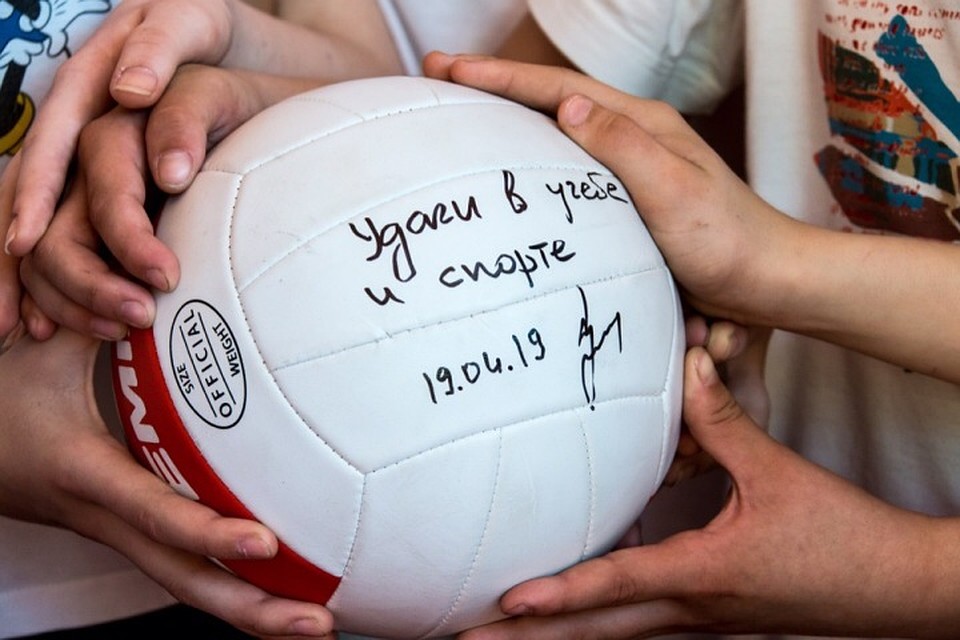 Удачи в учебе
и спорте
19.04.19
OFFICIAL
SIZE
WEIGHT